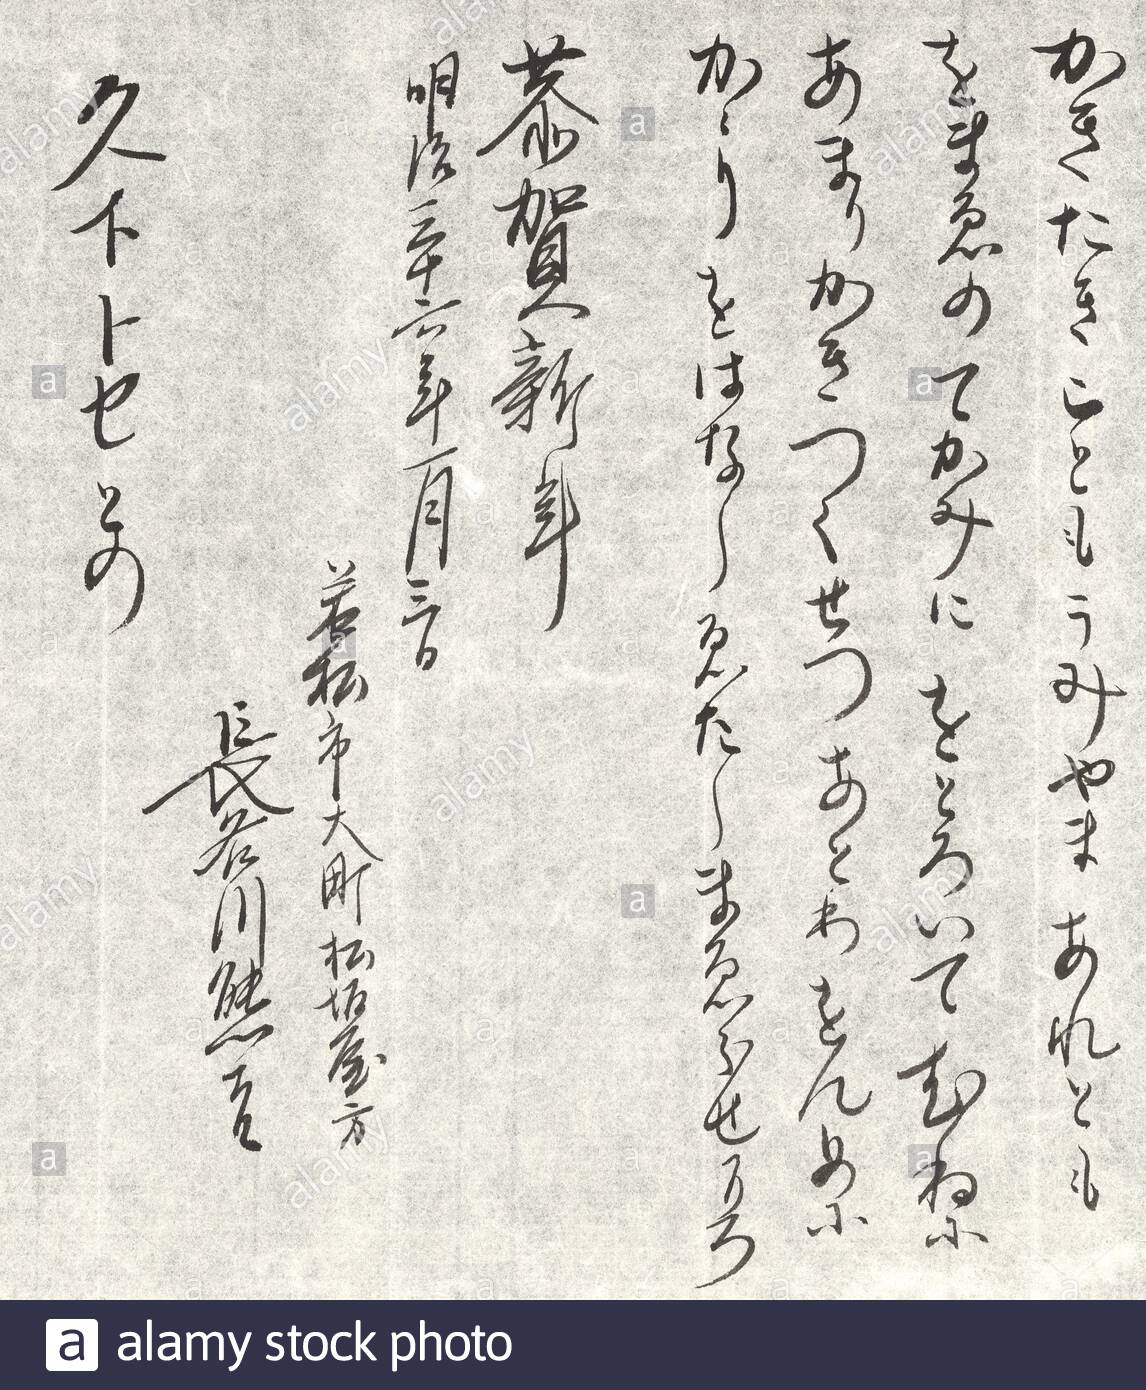 かきたきこともうみやまあれとも
をまゑのてかみにをとろいてむねに
あまりかきつくせつあとわをんめに
かゝりをはなしゑたしまゑらせ
恭賀新年
明治三十六年一月三日
若松市大町松坂屋方
長谷川熊吉
久下トセとの
alamy stock photo